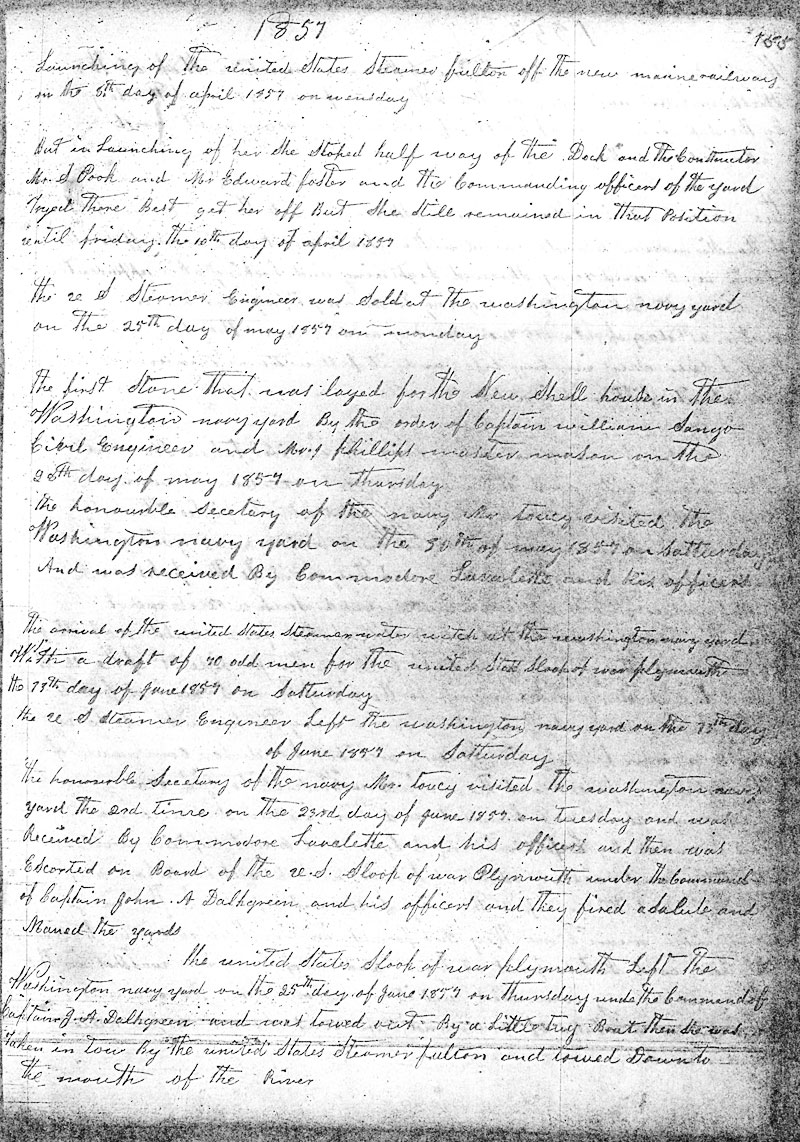 1857
155
Launching of The united States Steamer fulton off the new marine railways
in the 8th day of april 1857 on wensday
But in Launching of her She Stoped half way of the Dock and The Constructor
Mr. S Pook and Mr Edward foster and the Commanding officers of the yard
Tryed There Best get her off But She Still remained in that Position
until friday. the 10th day of april 1857
the u S Steamer Engineer was Sold at the washington navy yard
on the 25th day of may 1857 on monday
the first Stone that was layed for the New Shell house in the
Washington navy yard By the order of Captain william Sanger
Civil Engineer and Mr. J phillips master mason on the
28th day of may 1857 on thursday
the honourble Secetary of the navy Mr. toucy visited the
Washington navy yard on the 30th of may 1857 on Satturday
And was received By Commodore Lavalette and his officers
The arrival of the united States Steamer water witch at the washington navy yard
With a draft of 70 odd men for the united Stat Sloop of war plymouth
the 13th day of June 1857 on Satturday
the u S Steamer Engineer Left the washington navy yard on the 13th day
of June 1857 on Satturday
the honourble Secretary of the navy Mr. toucy visited the washington navy
yard the 2nd time on the 23rd day of June 1857 on tuesday and was
Received By Commodore Lavalette and his officers and then was
Escorted on Board of the u.S. Sloop of war Plymouth under the Command
of Captain John. A Dalhgreen and his officers and they fired a Salute and
Maned the yards
the united States Sloop of war plymouth Left the
Washington navy yard on the 25th day of June 1857 on thursday unde the Command of
Captain J. A. Dalhgreen and was towed out By a little tug Boat then She was
Taken in tow By the united States Steamer fulton and towed Down to
the mouth of the River